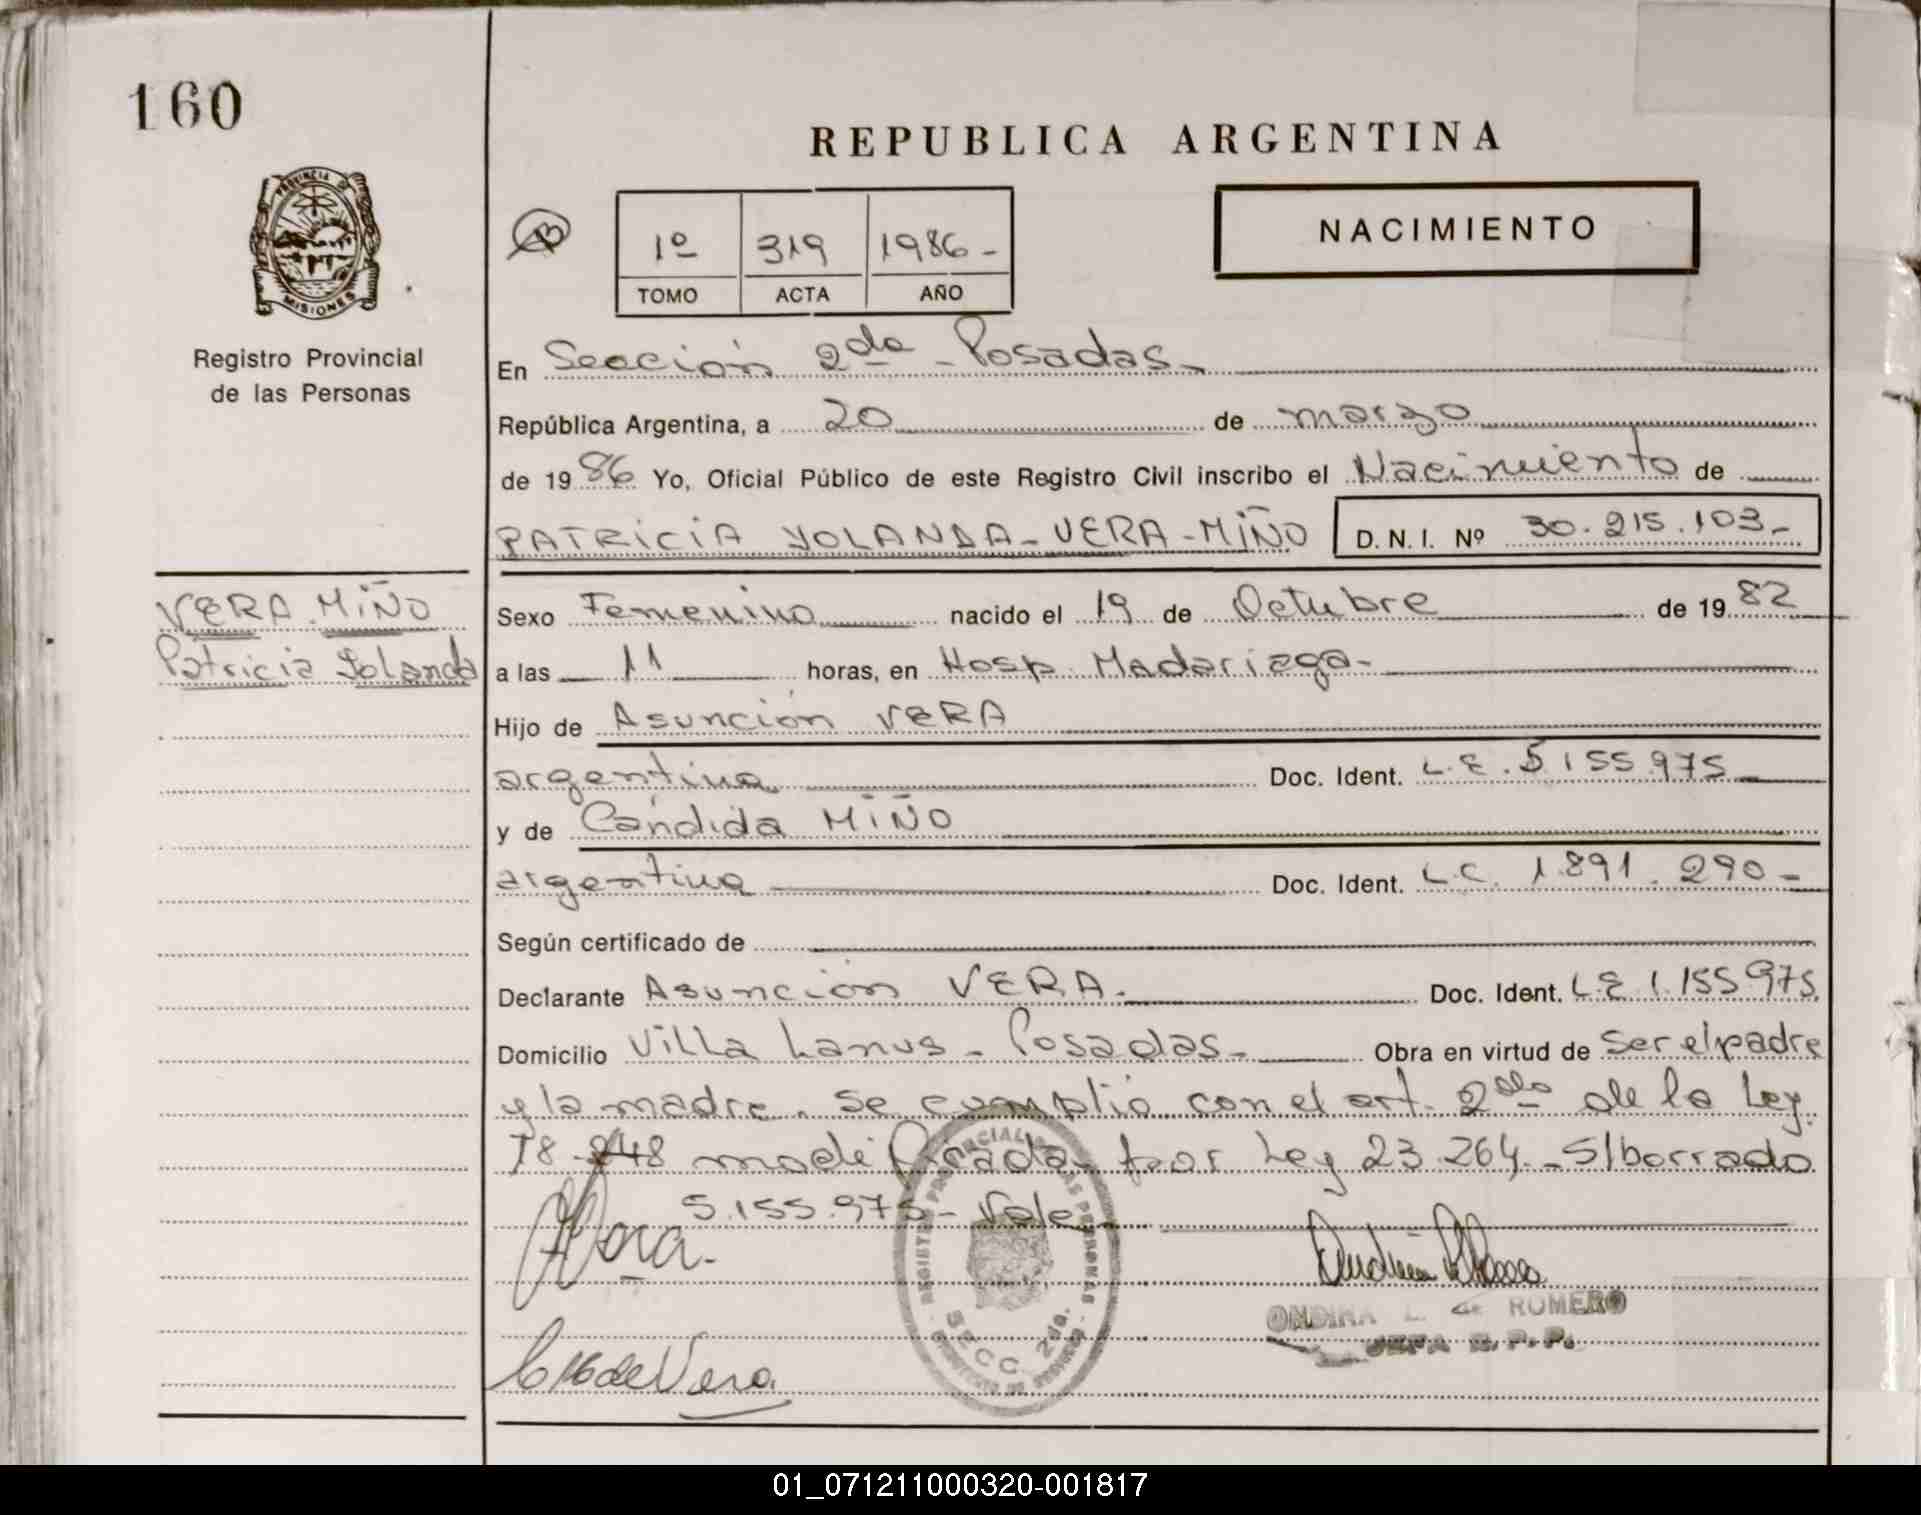 160
REPUBLICA ARGENTINA
PROVINCIA DE
MISIONES
1º 319 1986-
TOMO ACTA AÑO
NACIMIENTO
Registro Provincial
de las Personas
En Sección 2da - Posadas-
República Argentina, a 20 de marzo
de 1986 Yo, Oficial Público de este Registro Civil inscribo el Nacimiento de
PATRICIA YOLANDA-VERA-MIÑO D.N.I. Nº 30.215.103-
VERA MIÑO
Patricia Yolanda
Sexo Femenino nacido el 19 de Octubre de 1982
a las 11 horas, en Hosp. Madariaga-
Hijo de Asunción VERA
argentina Doc. Ident. L.E. 5.155.975
y de Cándida MIÑO
argentina Doc. Ident. L.C. 1.891.290-
Según certificado de
Declarante Asunción VERA. Doc. Ident. L.E 1.155975
Domicilio Villa Lanus - Posadas- Obra en virtud de ser el padre
y la madre. Se cumplió con el art. 2do de la Ley
18.248 modificada por Ley 23.264.- S/borrado
5.155.975- Vale
Vera.
de Vera
REGISTRO PROVINCIAL DE LAS PERSONAS
SECC. 2da.
L. de ROMERO
JEFA R.P.P.
01_071211000320-001817